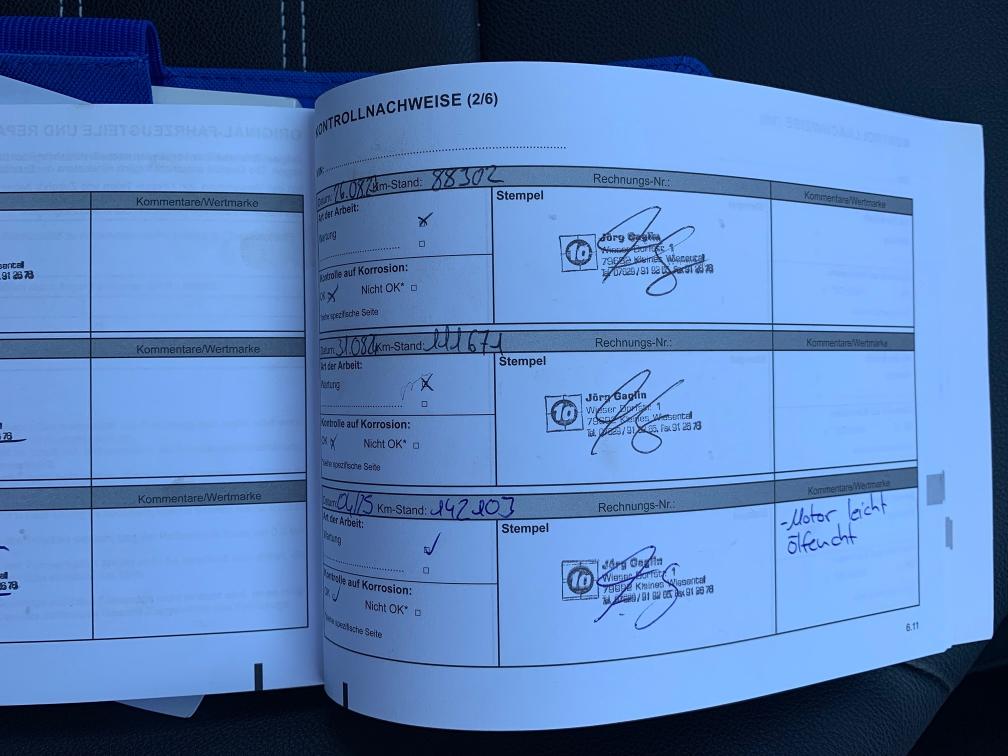 KONTROLLNACHWEISE (2/6)
Kommentare/Wertmarke
Datum: Km-Stand: 88302 Rechnungs-Nr.: Kommentare/Wertmarke
Art der Arbeit:
Wartung
Stempel
Jörg Gaglin
Wieser Dorfstr. 1
79692 Kleines Wiesental
Tel. 07629 / 91 92 05, Fax 91 26 78
Kontrolle auf Korrosion:
OK Nicht OK*
*siehe spezifische Seite
Kommentare/Wertmarke
Datum: Km-Stand: 111671 Rechnungs-Nr.: Kommentare/Wertmarke
Art der Arbeit:
Wartung
Stempel
Jörg Gaglin
Wieser Dorfstr. 1
79692 Kleines Wiesental
Tel. 07629 / 91 92 05, Fax 91 26 78
Kontrolle auf Korrosion:
OK Nicht OK*
*siehe spezifische Seite
Kommentare/Wertmarke
Datum: 04/25 Km-Stand: 142103 Rechnungs-Nr.: Kommentare/Wertmarke
Art der Arbeit:
Wartung
Stempel
Jörg Gaglin
Wieser Dorfstr. 1
79692 Kleines Wiesental
Tel. 07629 / 91 92 05, Fax 91 26 78
- Motor leicht
ölfeucht
Kontrolle auf Korrosion:
OK Nicht OK*
*siehe spezifische Seite
6.11